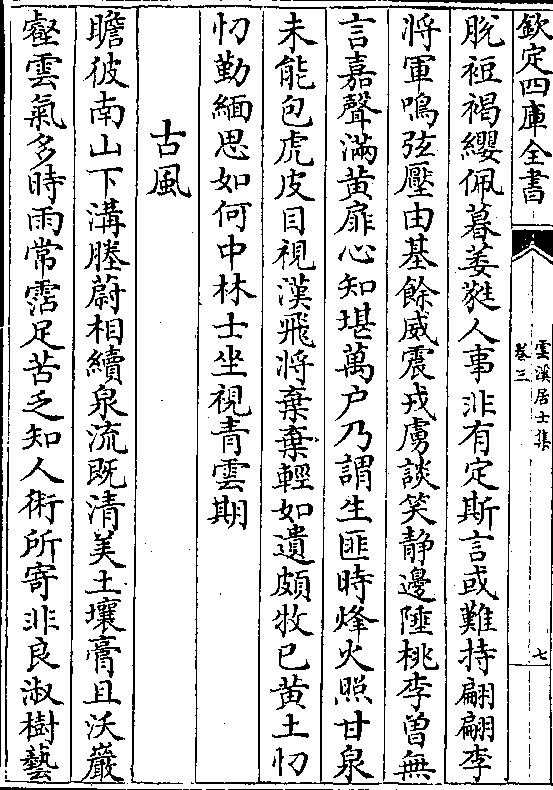 欽定四庫全書
雲溪居士集
卷三
七
脫袒褐纓佩暮萎蕤人事非有定斯言或難持翩翩李
將軍鳴弦壓由基餘威震戎虜談笑静邊陲桃李曽無
言嘉聲滿黄扉心知堪萬户乃謂生匪時烽火照甘泉
未能包虎皮目視漢飛將棄棄輕如遺頗牧已黄土忉
忉勤緬思如何中林士坐視青雲期
古風
瞻彼南山下溝塍蔚相續泉流既清美土壤膏且沃巖
壑雲氣多時雨常霑足苦乏知人術所寄非良淑樹藝